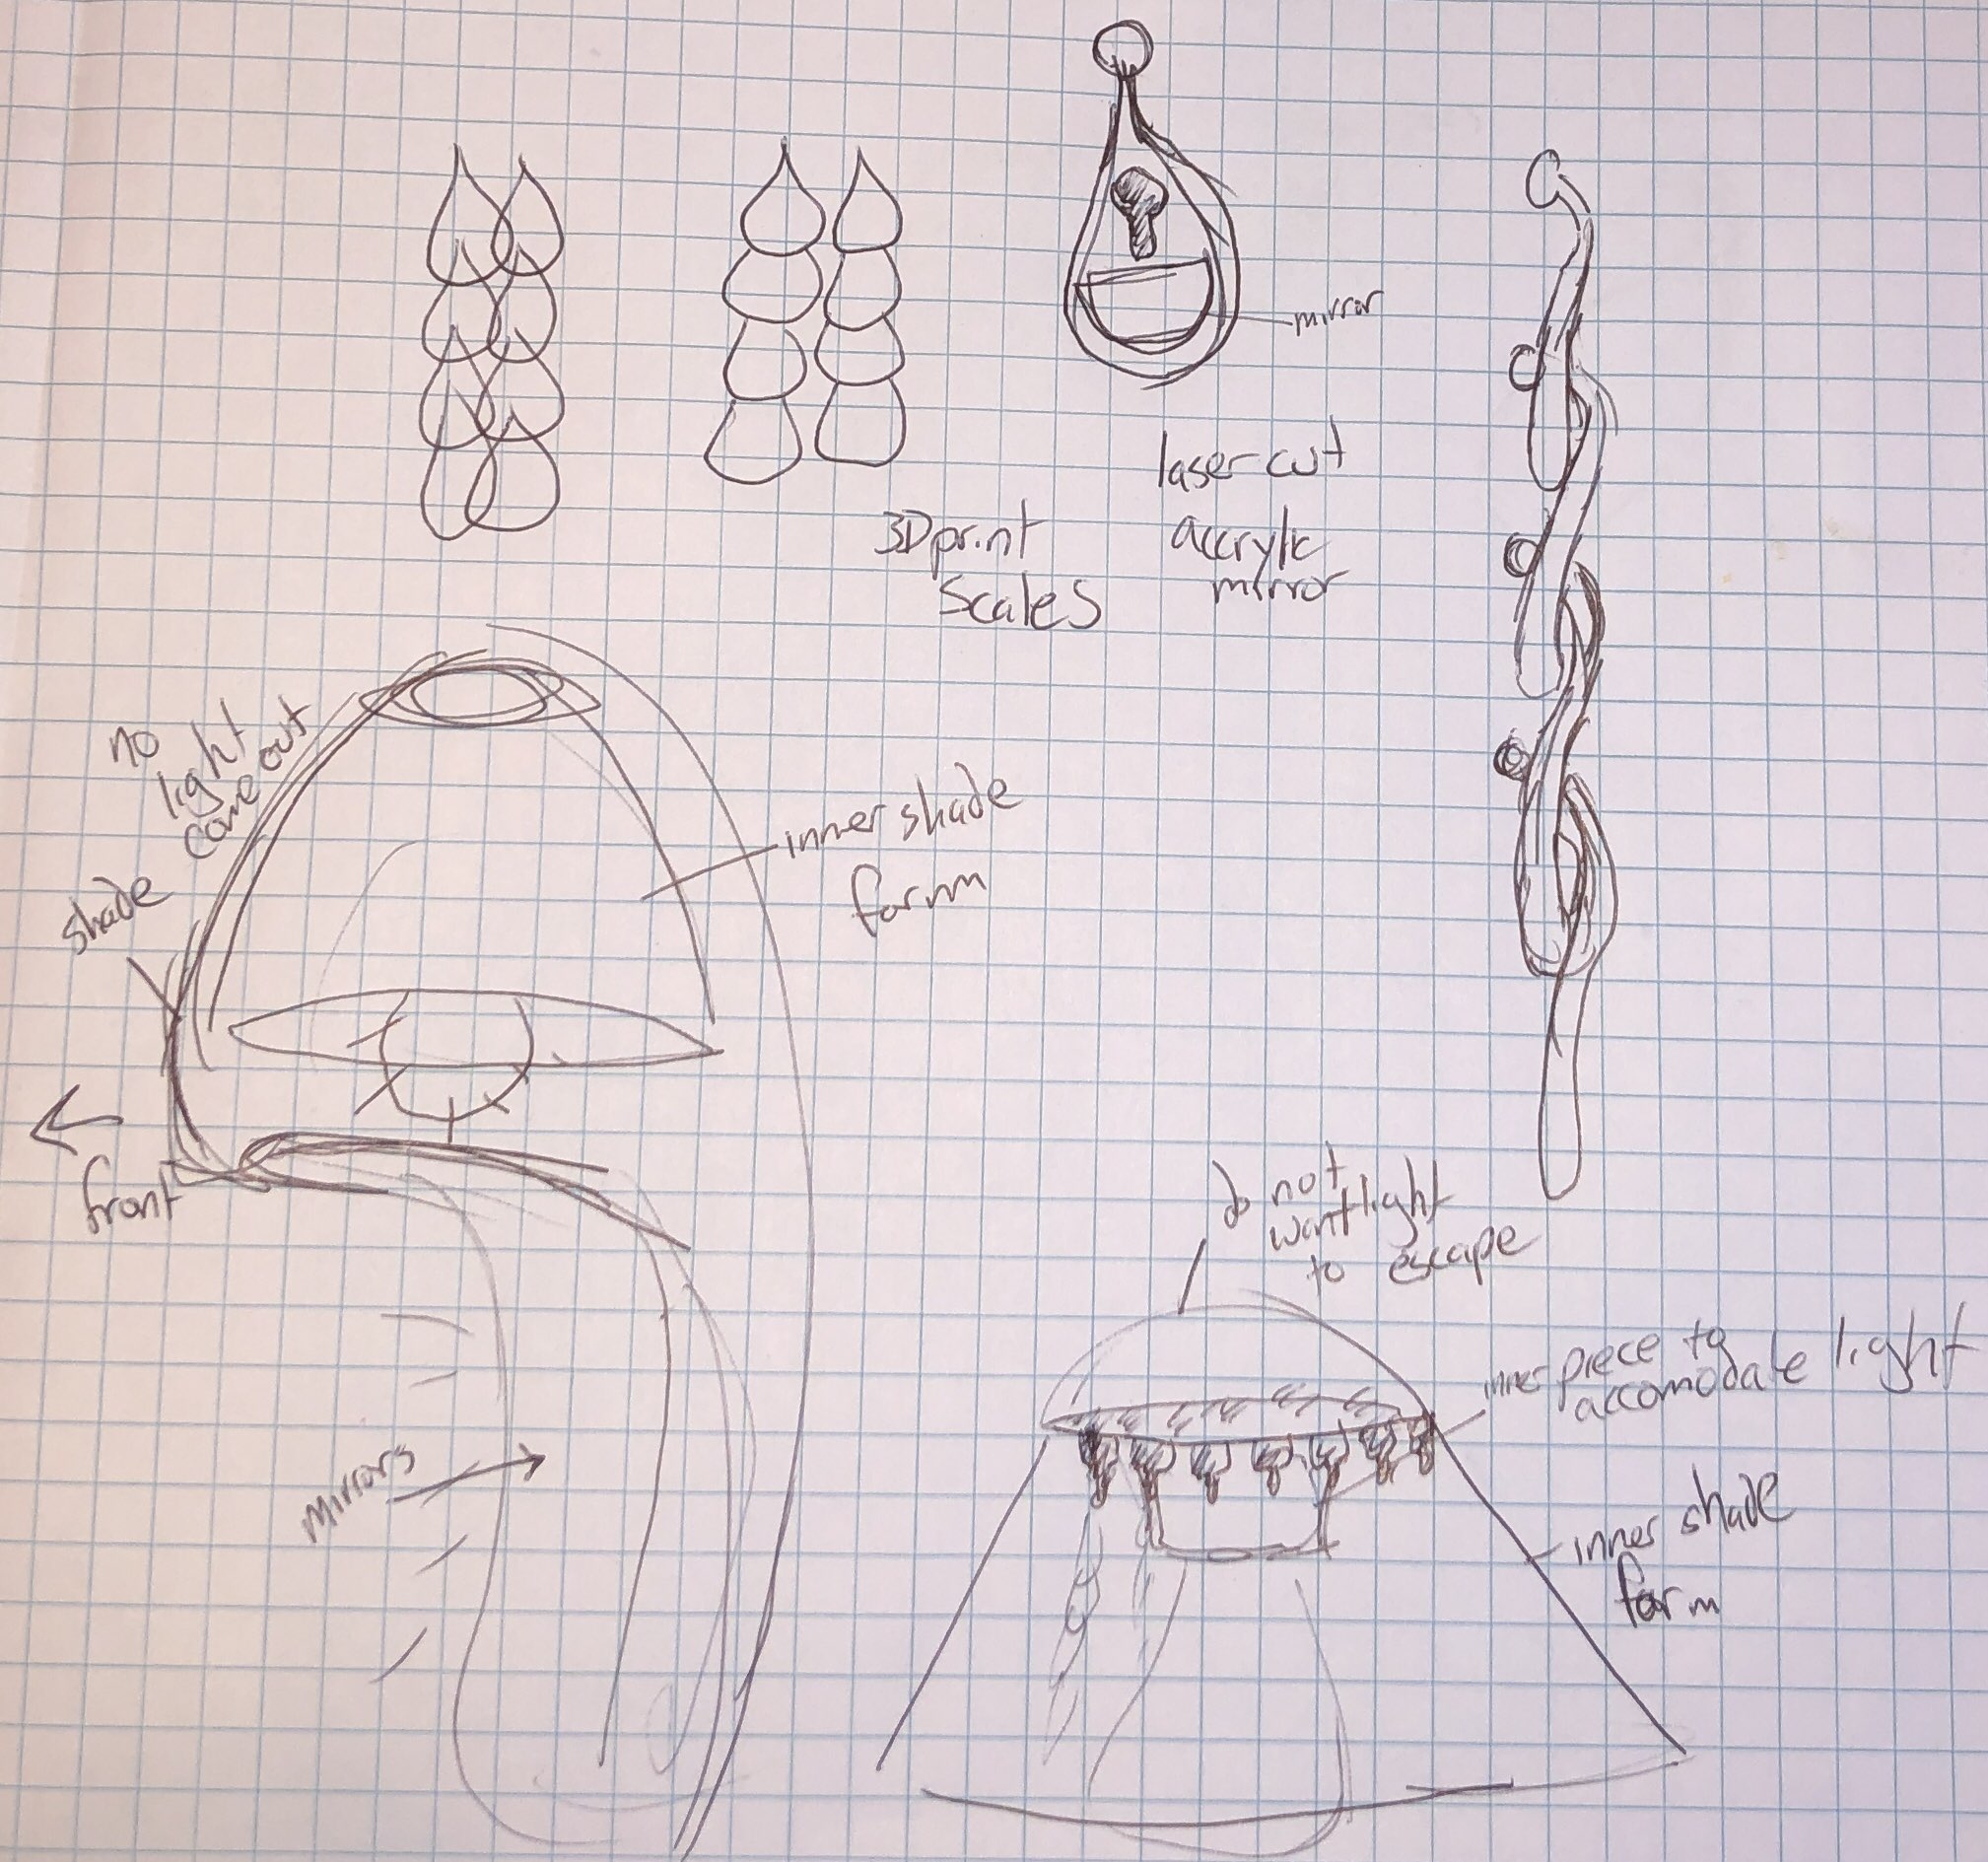 mirror
laser cut
accrylic
mirror
3D print
Scales
no
light
come out
shade
inner shade
form
front
do not
want light
to escape
inner piece to
accomodate light
Mirrors
inner shade
form